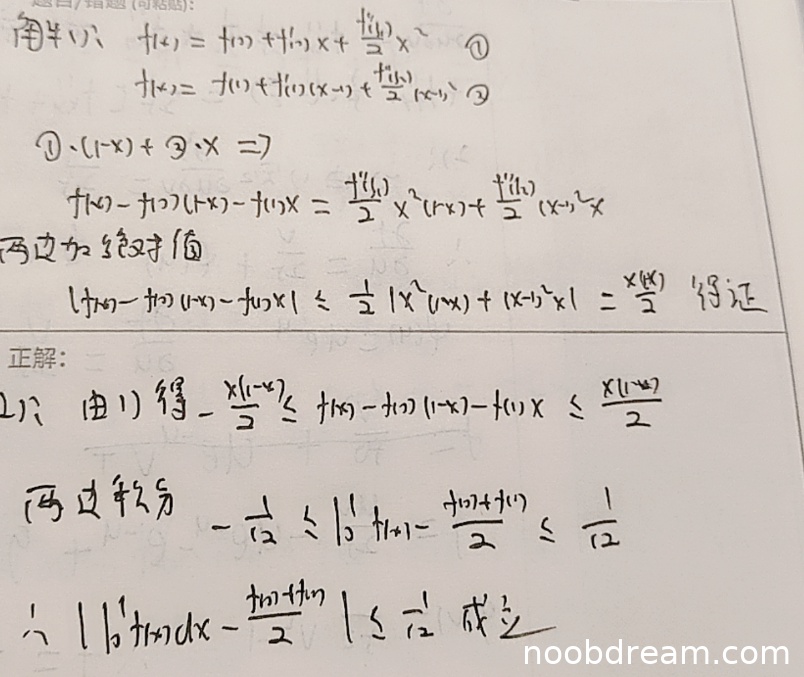 题目/错题(可粘贴):
解1): f(x) = f(0) + f'(0)x + f''(ξ₁)/2 x² ①
f(x) = f(1) + f'(1)(x-1) + f''(ξ₂)/2 (x-1)² ②
①·(1-x) + ②·x ⇒
f(x) - f(0)(1-x) - f(1)x = f''(ξ₁)/2 x²(1-x) + f''(ξ₂)/2 (x-1)²x
两边加绝对值
|f(x) - f(0)(1-x) - f(1)x| ≤ 1/2 |x²(1-x) + (x-1)²x| = x(1-x)/2 得证
正解:
2): 由1)得 - x(1-x)/2 ≤ f(x) - f(0)(1-x) - f(1)x ≤ x(1-x)/2
两边积分
- 1/12 ≤ ∫₀¹ f(x) - (f(0)+f(1))/2 ≤ 1/12
∴ |∫₀¹ f(x)dx - (f(0)+f(1))/2| ≤ 1/12 成立
noobdream.com